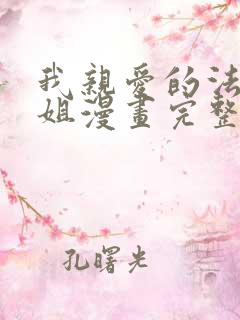 我親愛的法
姐漫畫完整
孔曙光